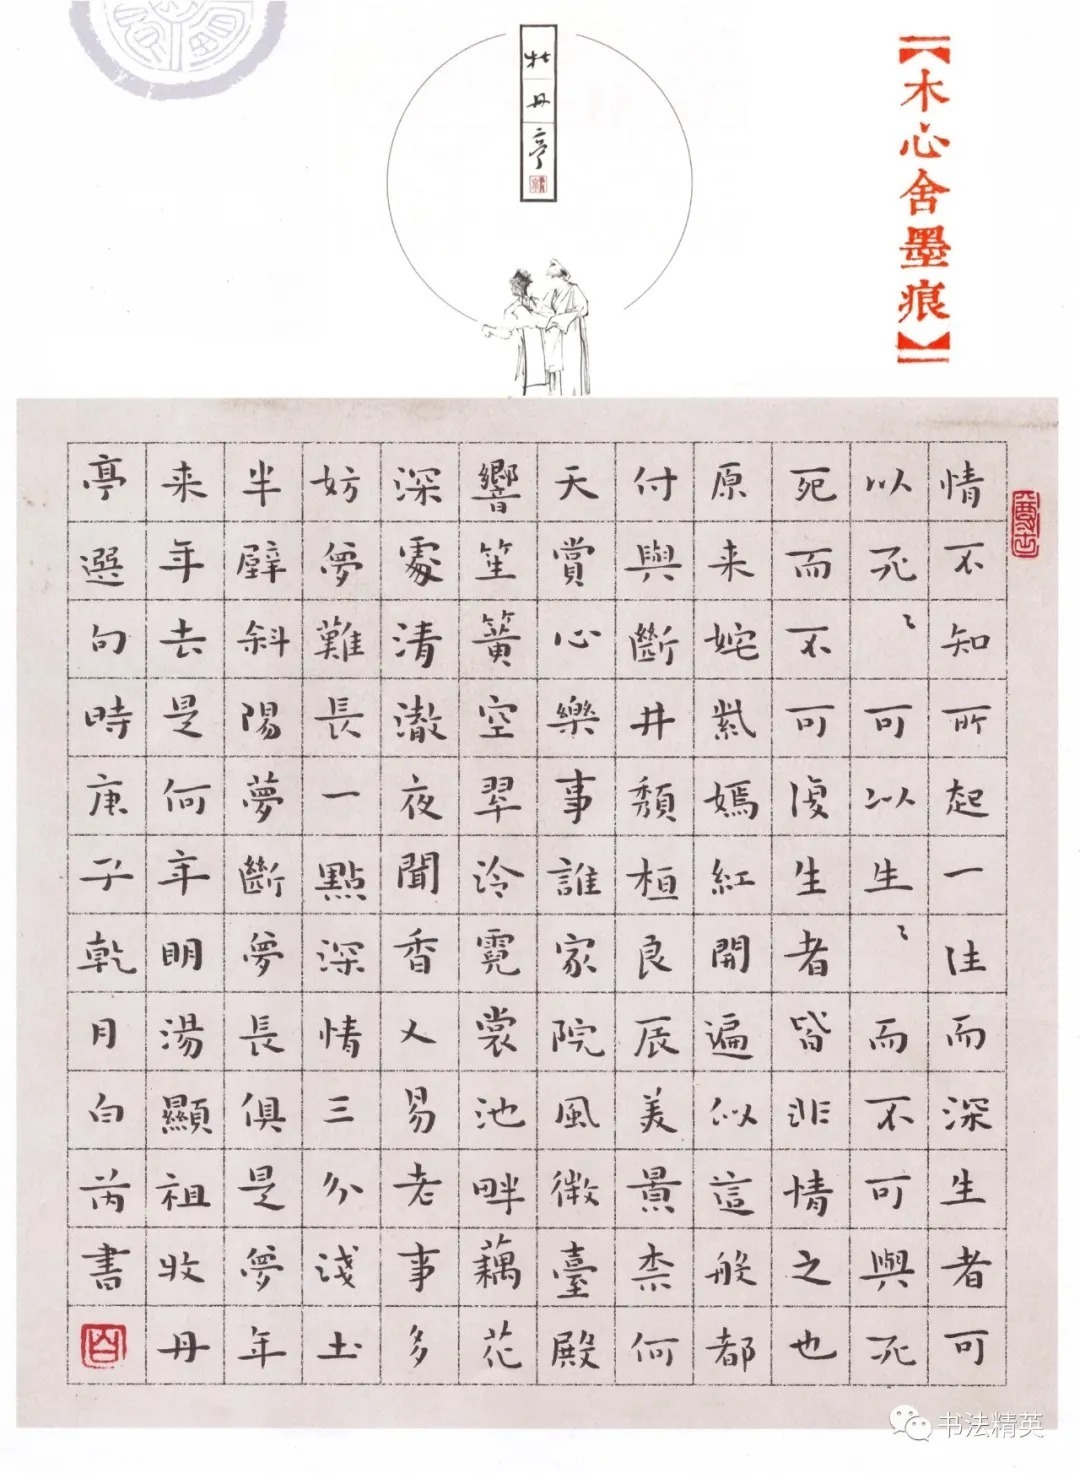 【木心舍墨痕】
牡丹亭
情不知所起一往而深生者可
以死々可以生々而不可與死
死而不可復生者皆非情之也
原来姹紫嫣紅開遍似這般都
付與斷井頹桓良辰美景柰何
天賞心樂事誰家院風微臺殿
響笙簧空翠泠霓裳池畔藕花
深處清澈夜聞香人易老事多
妨夢難長一點深情三分淺土
半壁斜陽夢斷夢長俱是夢年
来年去是何年明湯顯祖牡丹
亭選句時庚子乾月白芮書
书法精英